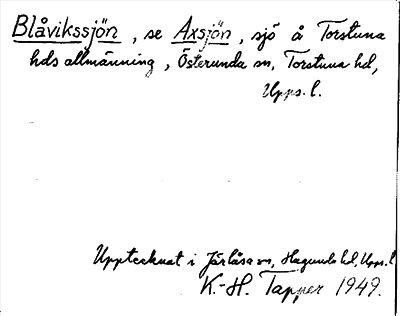 Blåvikssjön, se Axsjön, sjö å Torstuna
hds allmänning, Österunda sn, Torstuna hd,
Upps. l.
Upptecknat i Järlåsa sn, Hagunda hd, Upps. l.
K.-H. Tapper 1949.